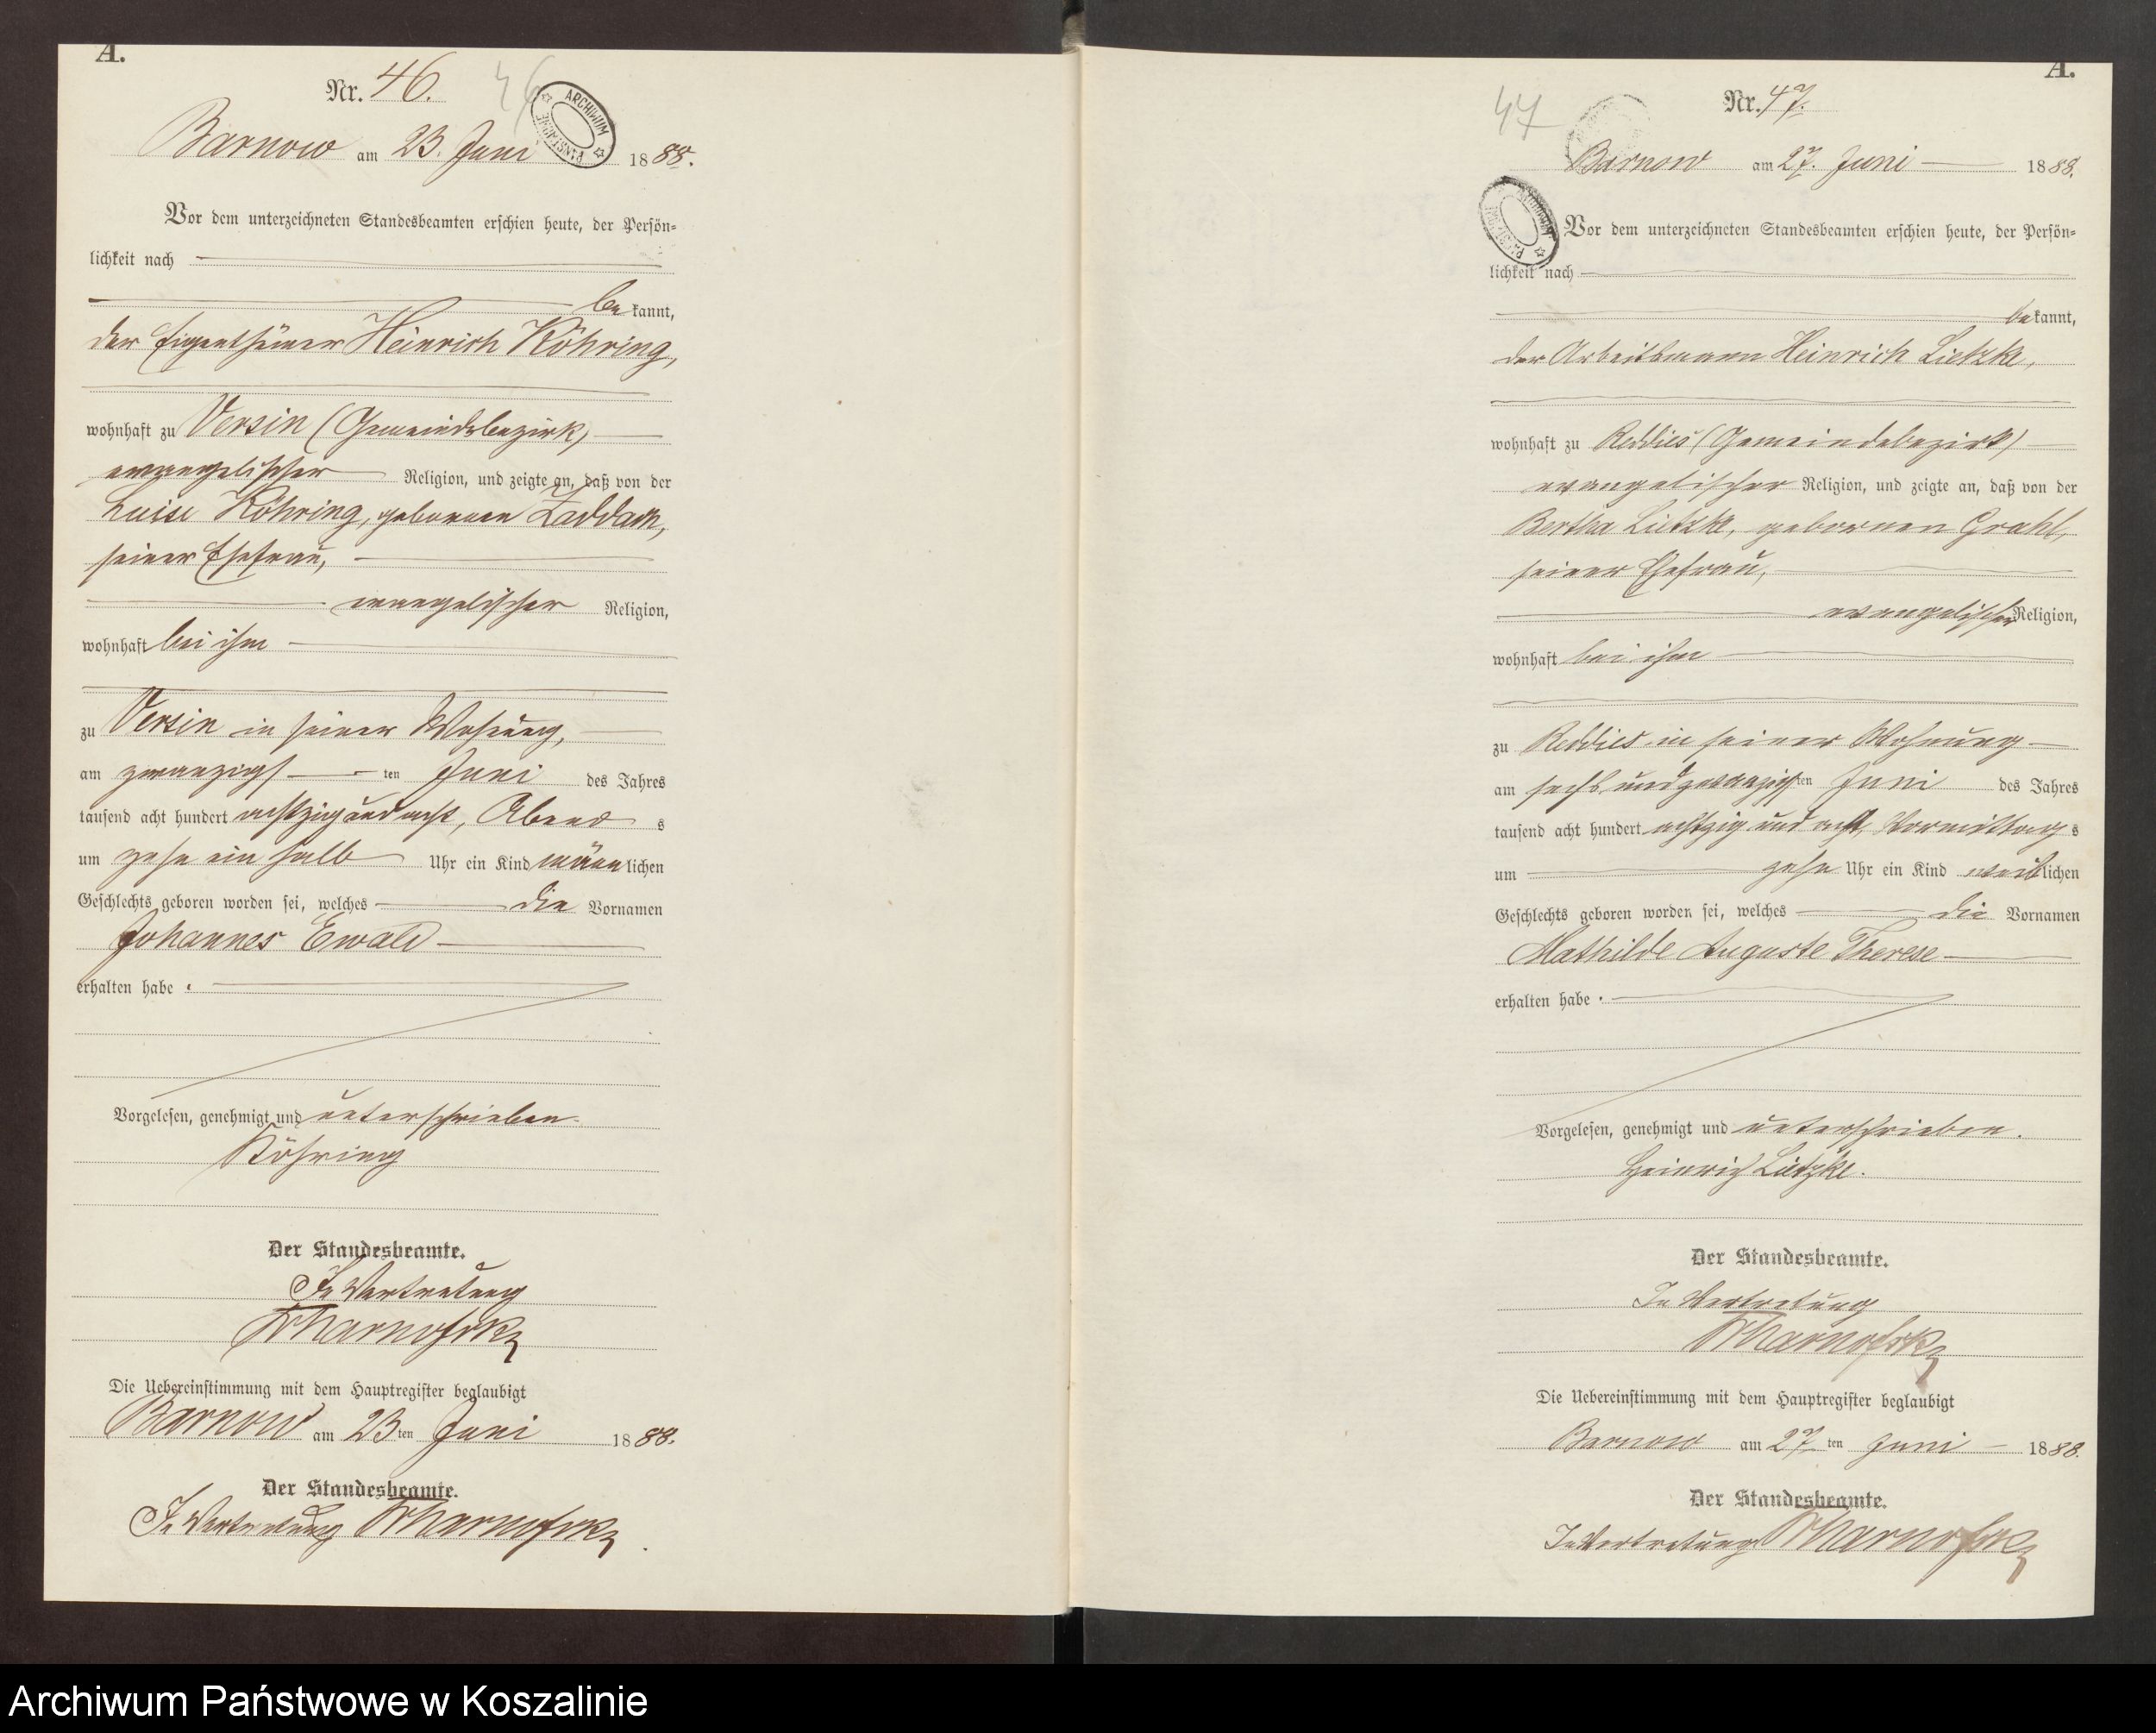 A.
Nr. 46.
46
ARCHIWUM
PAŃSTWOWE
Barnow am 23. Juni 1888.
Vor dem unterzeichneten Standesbeamten erschien heute, der Persön-
lichkeit nach
be kannt,
der Eigenthümer Heinrich Köhring,
wohnhaft zu Versin (Gemeindebezirk)
evangelischer Religion, und zeigte an, daß von der
Luise Köhring, geborenen Zaddach,
seiner Ehefrau,
evangelischer Religion,
wohnhaft bei ihm
zu Versin in seiner Wohnung,
am zwanzigs ten Juni des Jahres
tausend acht hundert achtzig und acht, Abend s
um zehn ein halb Uhr ein Kind männ lichen
Geschlechts geboren worden sei, welches die Vornamen
Johannes Ewald
erhalten habe .
Vorgelesen, genehmigt und unterschrieben.
Köhring
Der Standesbeamte.
In Vertretung
Die Uebereinstimmung mit dem Hauptregister beglaubigt
Barnow am 23 ten Juni 1888.
Der Standesbeamte.
In Vertretung
A.
47
Nr. 47.
Barnow am 27. Juni 1888.
Vor dem unterzeichneten Standesbeamten erschien heute, der Persön-
lichkeit nach
be kannt,
der Arbeitsmann Heinrich Lietzke,
wohnhaft zu Reddies (Gemeindebezirk)
evangelischer Religion, und zeigte an, daß von der
Bertha Lietzke, gebornen Grahl,
seiner Ehefrau,
evangelischer Religion,
wohnhaft bei ihm
zu Reddies in seiner Wohnung
am sechs und zwanzigs ten Juni des Jahres
tausend acht hundert achtzig und acht, Vormittag s
um zehn Uhr ein Kind weib lichen
Geschlechts geboren worden sei, welches die Vornamen
Mathilde Auguste Therese
erhalten habe .
Vorgelesen, genehmigt und unterschrieben.
Heinrich Lietzke.
Der Standesbeamte.
In Vertretung
Die Uebereinstimmung mit dem Hauptregister beglaubigt
Barnow am 27 ten Juni 1888.
Der Standesbeamte.
In Vertretung
Archiwum Państwowe w Koszalinie